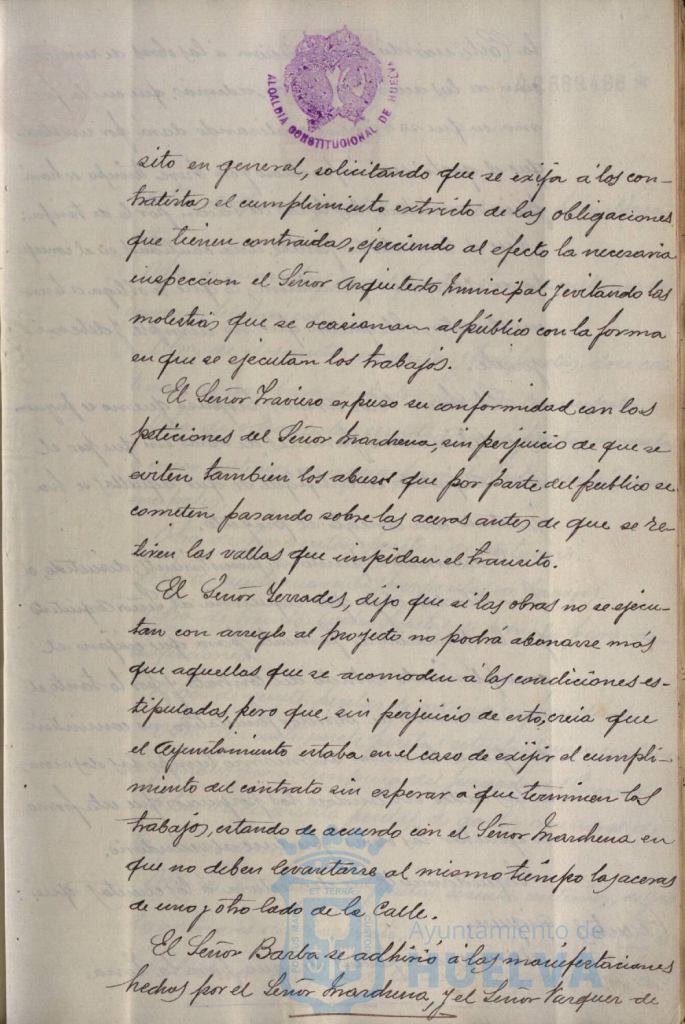 ALCALDIA CONSTITUCIONAL DE HUELVA
sito en general, solicitando que se exija á los con-
tratistas el cumplimiento extricto de las obligaciones
que tienen contraidas, ejerciendo al efecto la necesaria
inspeccion el Señor Arquitecto Municipal y evitando las
molestias que se ocasionan al público con la forma
en que se ejecutan los trabajos.
El Señor Travieso expuso su conformidad con las
peticiones del Señor Marchena, sin perjuicio de que se
eviten tambien los abusos que por parte del publico se
cometen pasando sobre las aceras antes de que se re-
tiren las vallas que impidan el transito.
El Señor Terrades, dijo que si las obras no se ejecu-
tan con arreglo al proyecto no podrá abonarse más
que aquellas que se acomoden á las condiciones es-
tipuladas, pero que, sin perjuicio de esto, creia que
el Ayuntamiento estaba en el caso de exijir el cumpli-
miento del contrato sin esperar a que terminen los
trabajos, estando de acuerdo con el Señor Marchena en
que no deben levantarse al mismo tiempo las aceras
de uno y otro lado de la Calle.
El Señor Barba se adhirió á las manifestaciones
hechas por el Señor Marchena, y el Señor Vazquez de
Ayuntamiento de
HUELVA